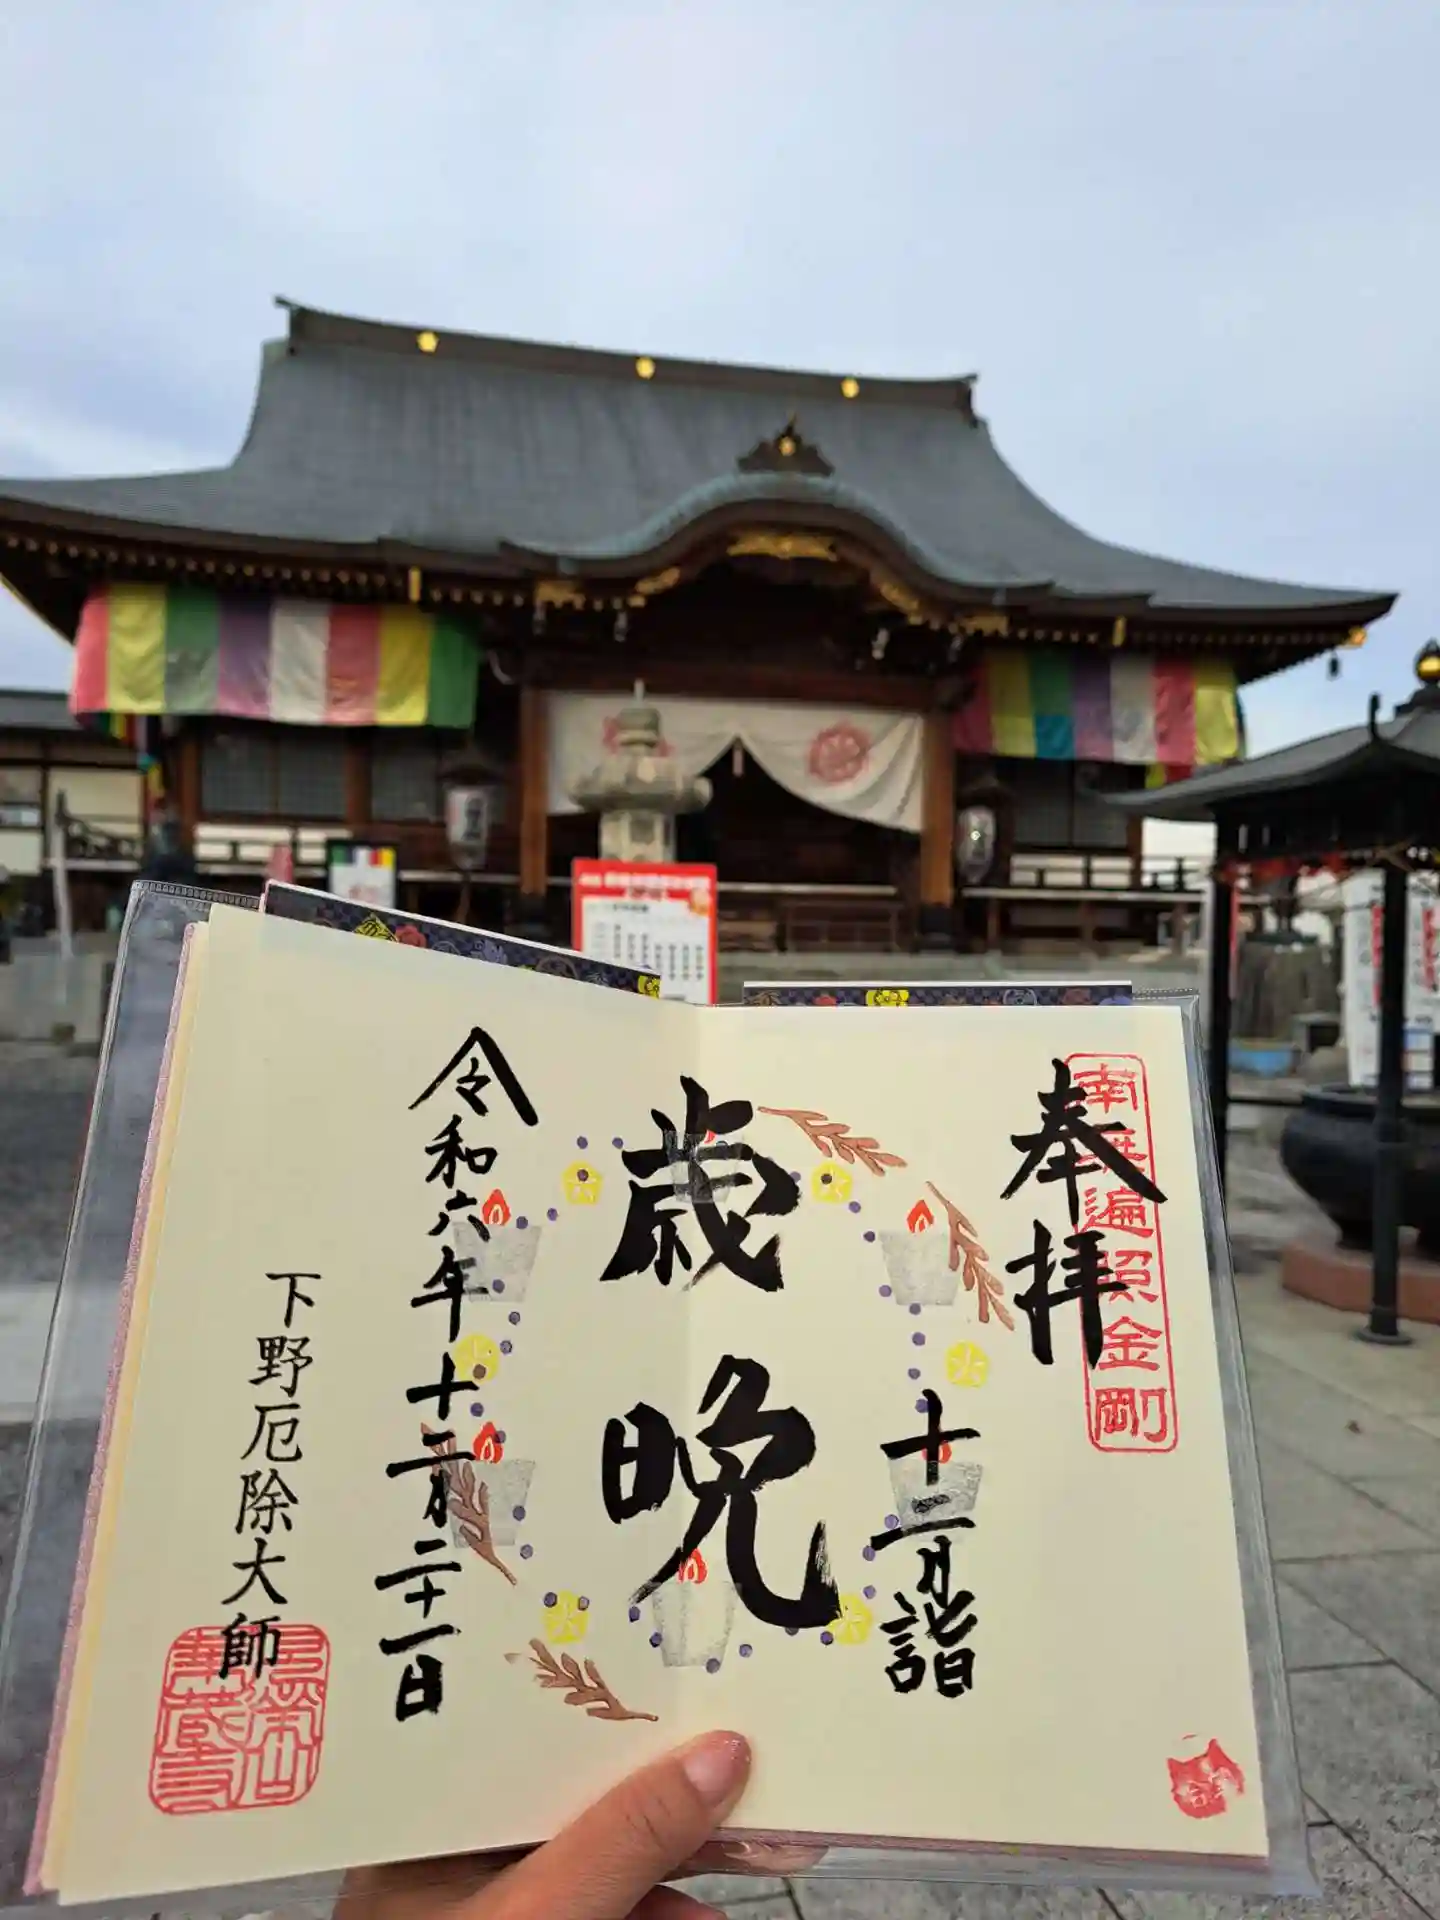 奉拝
南無遍照金剛
十二月詣
歳晩
令和六年十二月二十一日
下野厄除大師